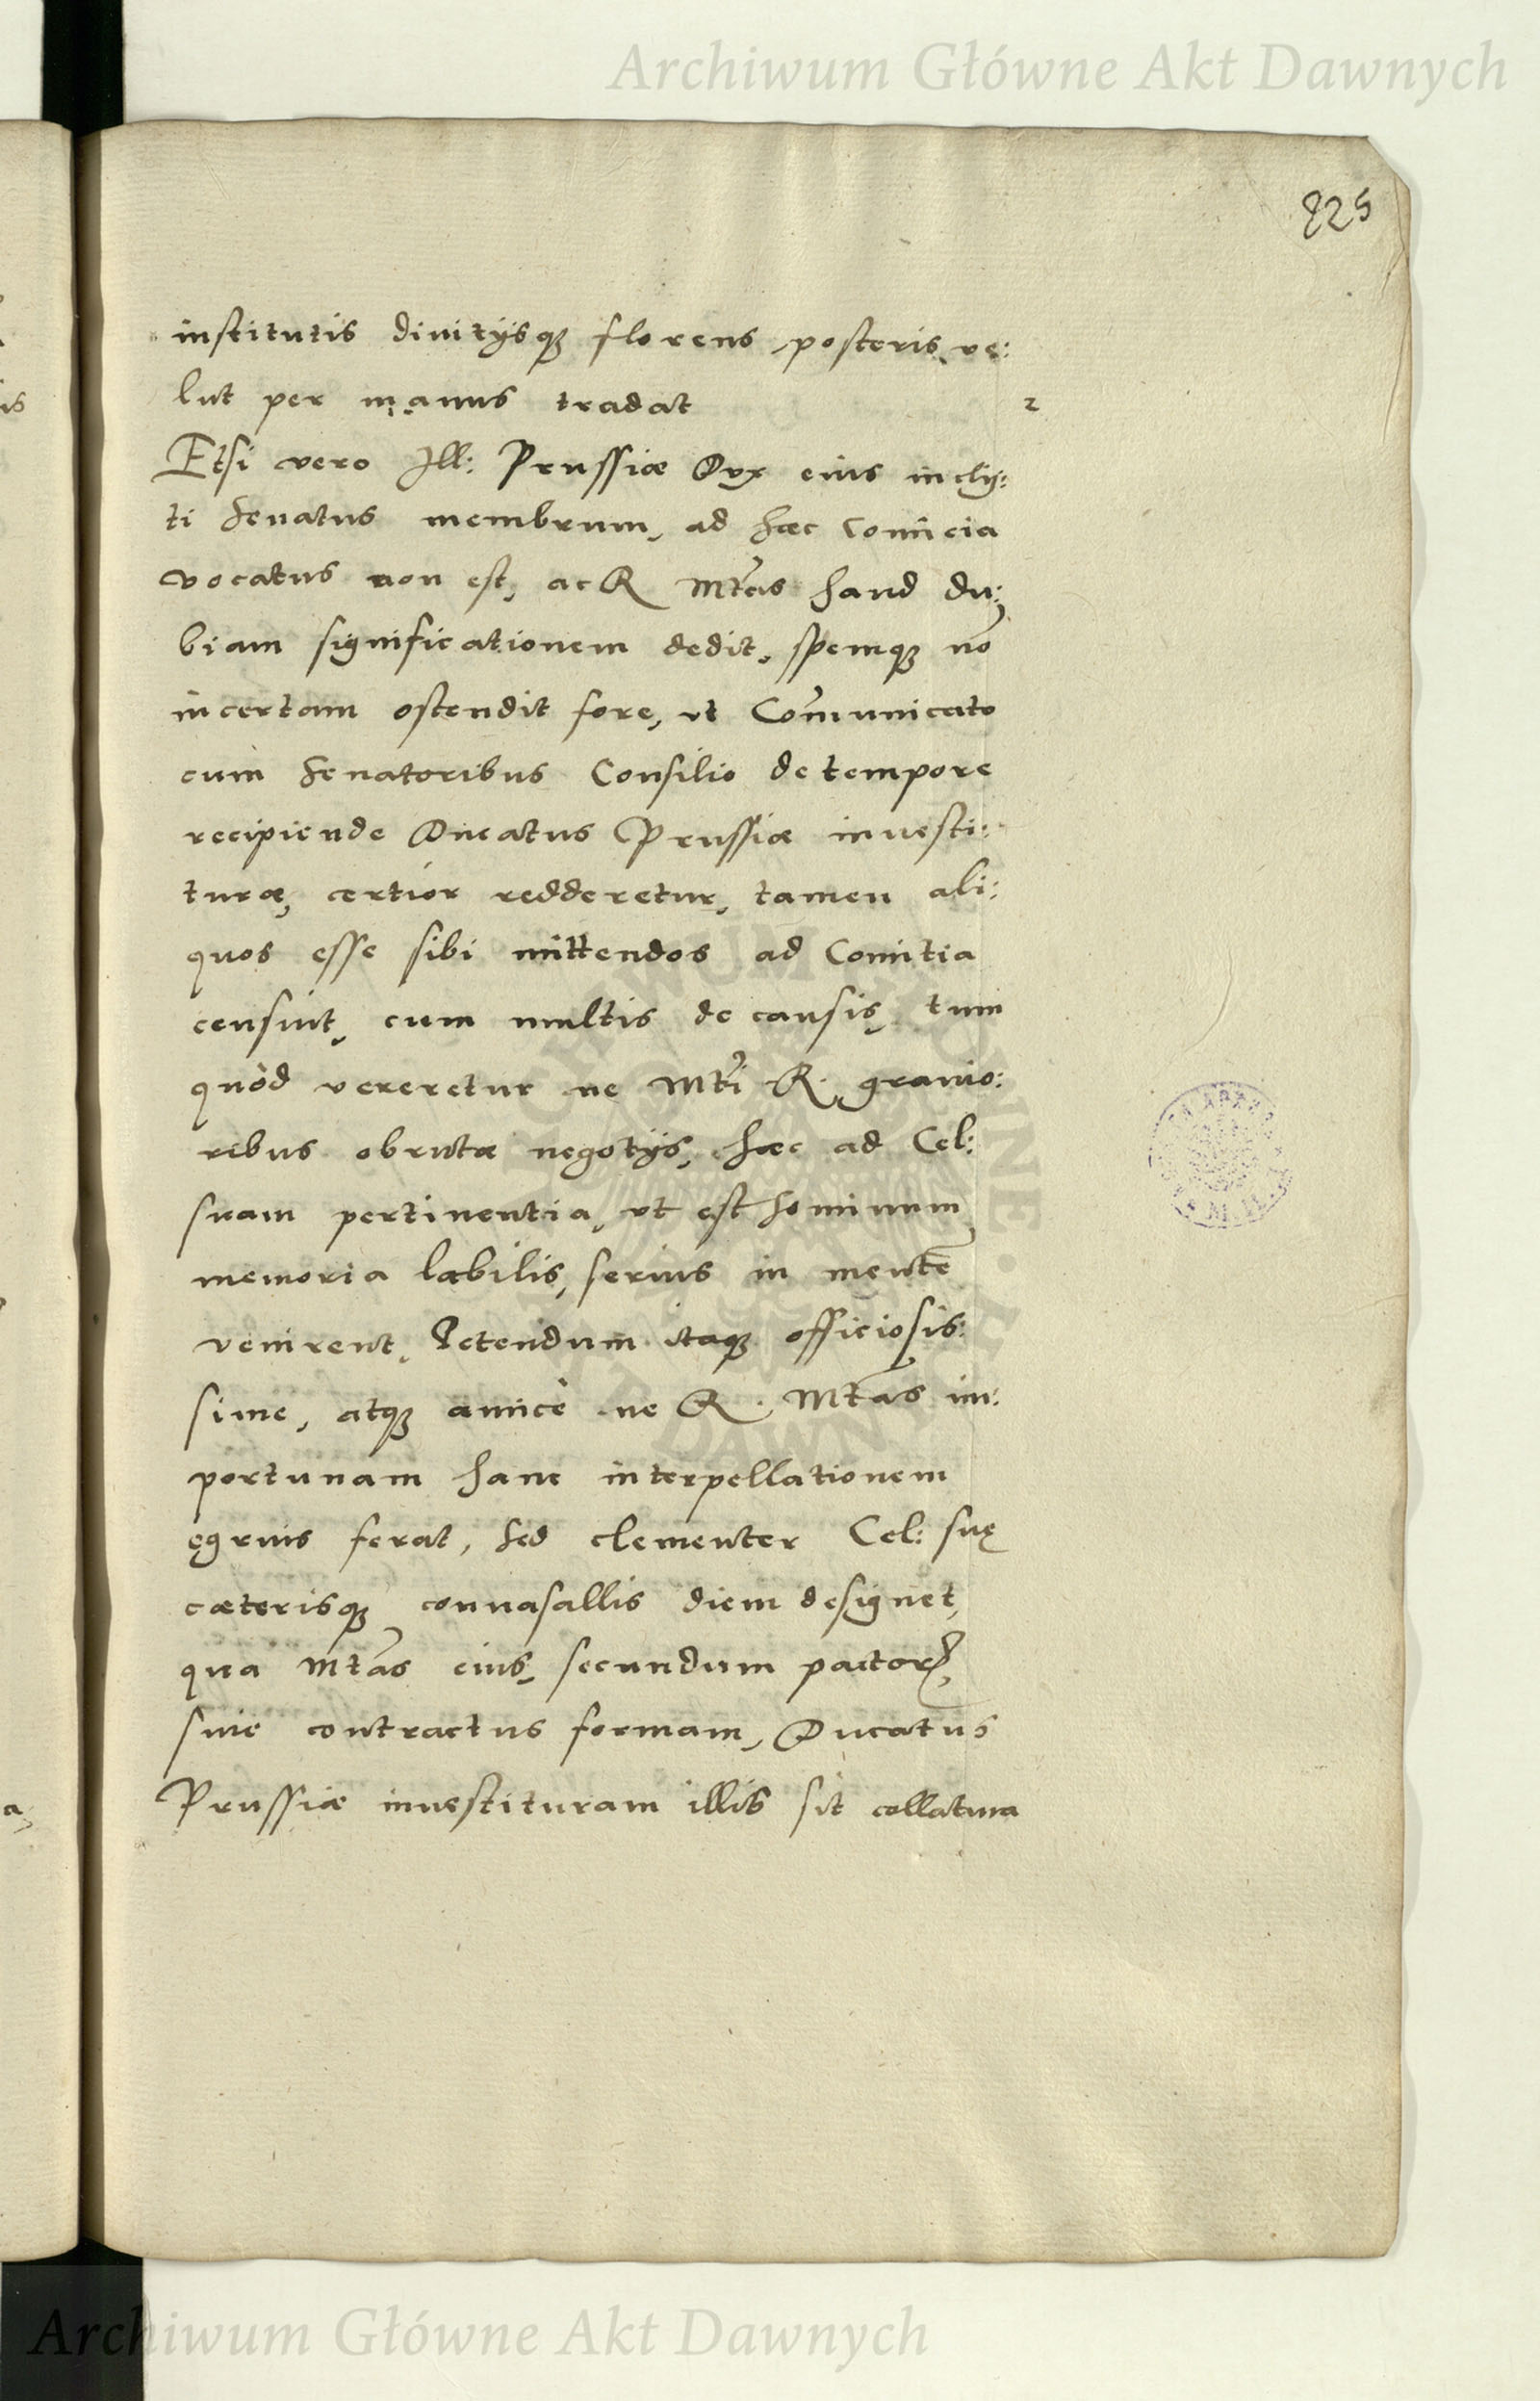 Archiwum Główne Akt Dawnych
825
institutis diuitijsq₃ florens posteris ve:
lut per manus tradat
2
Etsi vero Ill: Prussiæ Dux eius incly:
ti Senatus membrum, ad hæc Comicia
vocatus non est, ac R Mtas haud du:
biam significationem dedit, spemq₃ nō
incertam ostendit fore, vt Com̄unicato
cum Senatoribus Consilio de tempore
recipiende Ducatus Prussiæ inuesti:
turæ, certior redderetur, tamen ali:
quos esse sibi mittendos ad Comitia
censuit, cum multis de causis, tum
quòd vereretur ne Mti R. grauio:
ribus obrutæ negotijs, hæc ad Cel:
suam pertinentia, vt est hominum
memoria labilis, serius in mentē
venirent, Petendum itaq₃ officiosis:
sime, atq₃ amicè ne R. Mtas im:
portunam hanc interpellationem
ęgrius ferat, sed clementer Cel: suę
cæterisq₃ conuasallis diem designet,
qua Mtas eius, secundum pactorꝝ,
siue contractus formam, Ducatus
Prussiæ inuestituram illis sit collatura
Archiwum Główne Akt Dawnych